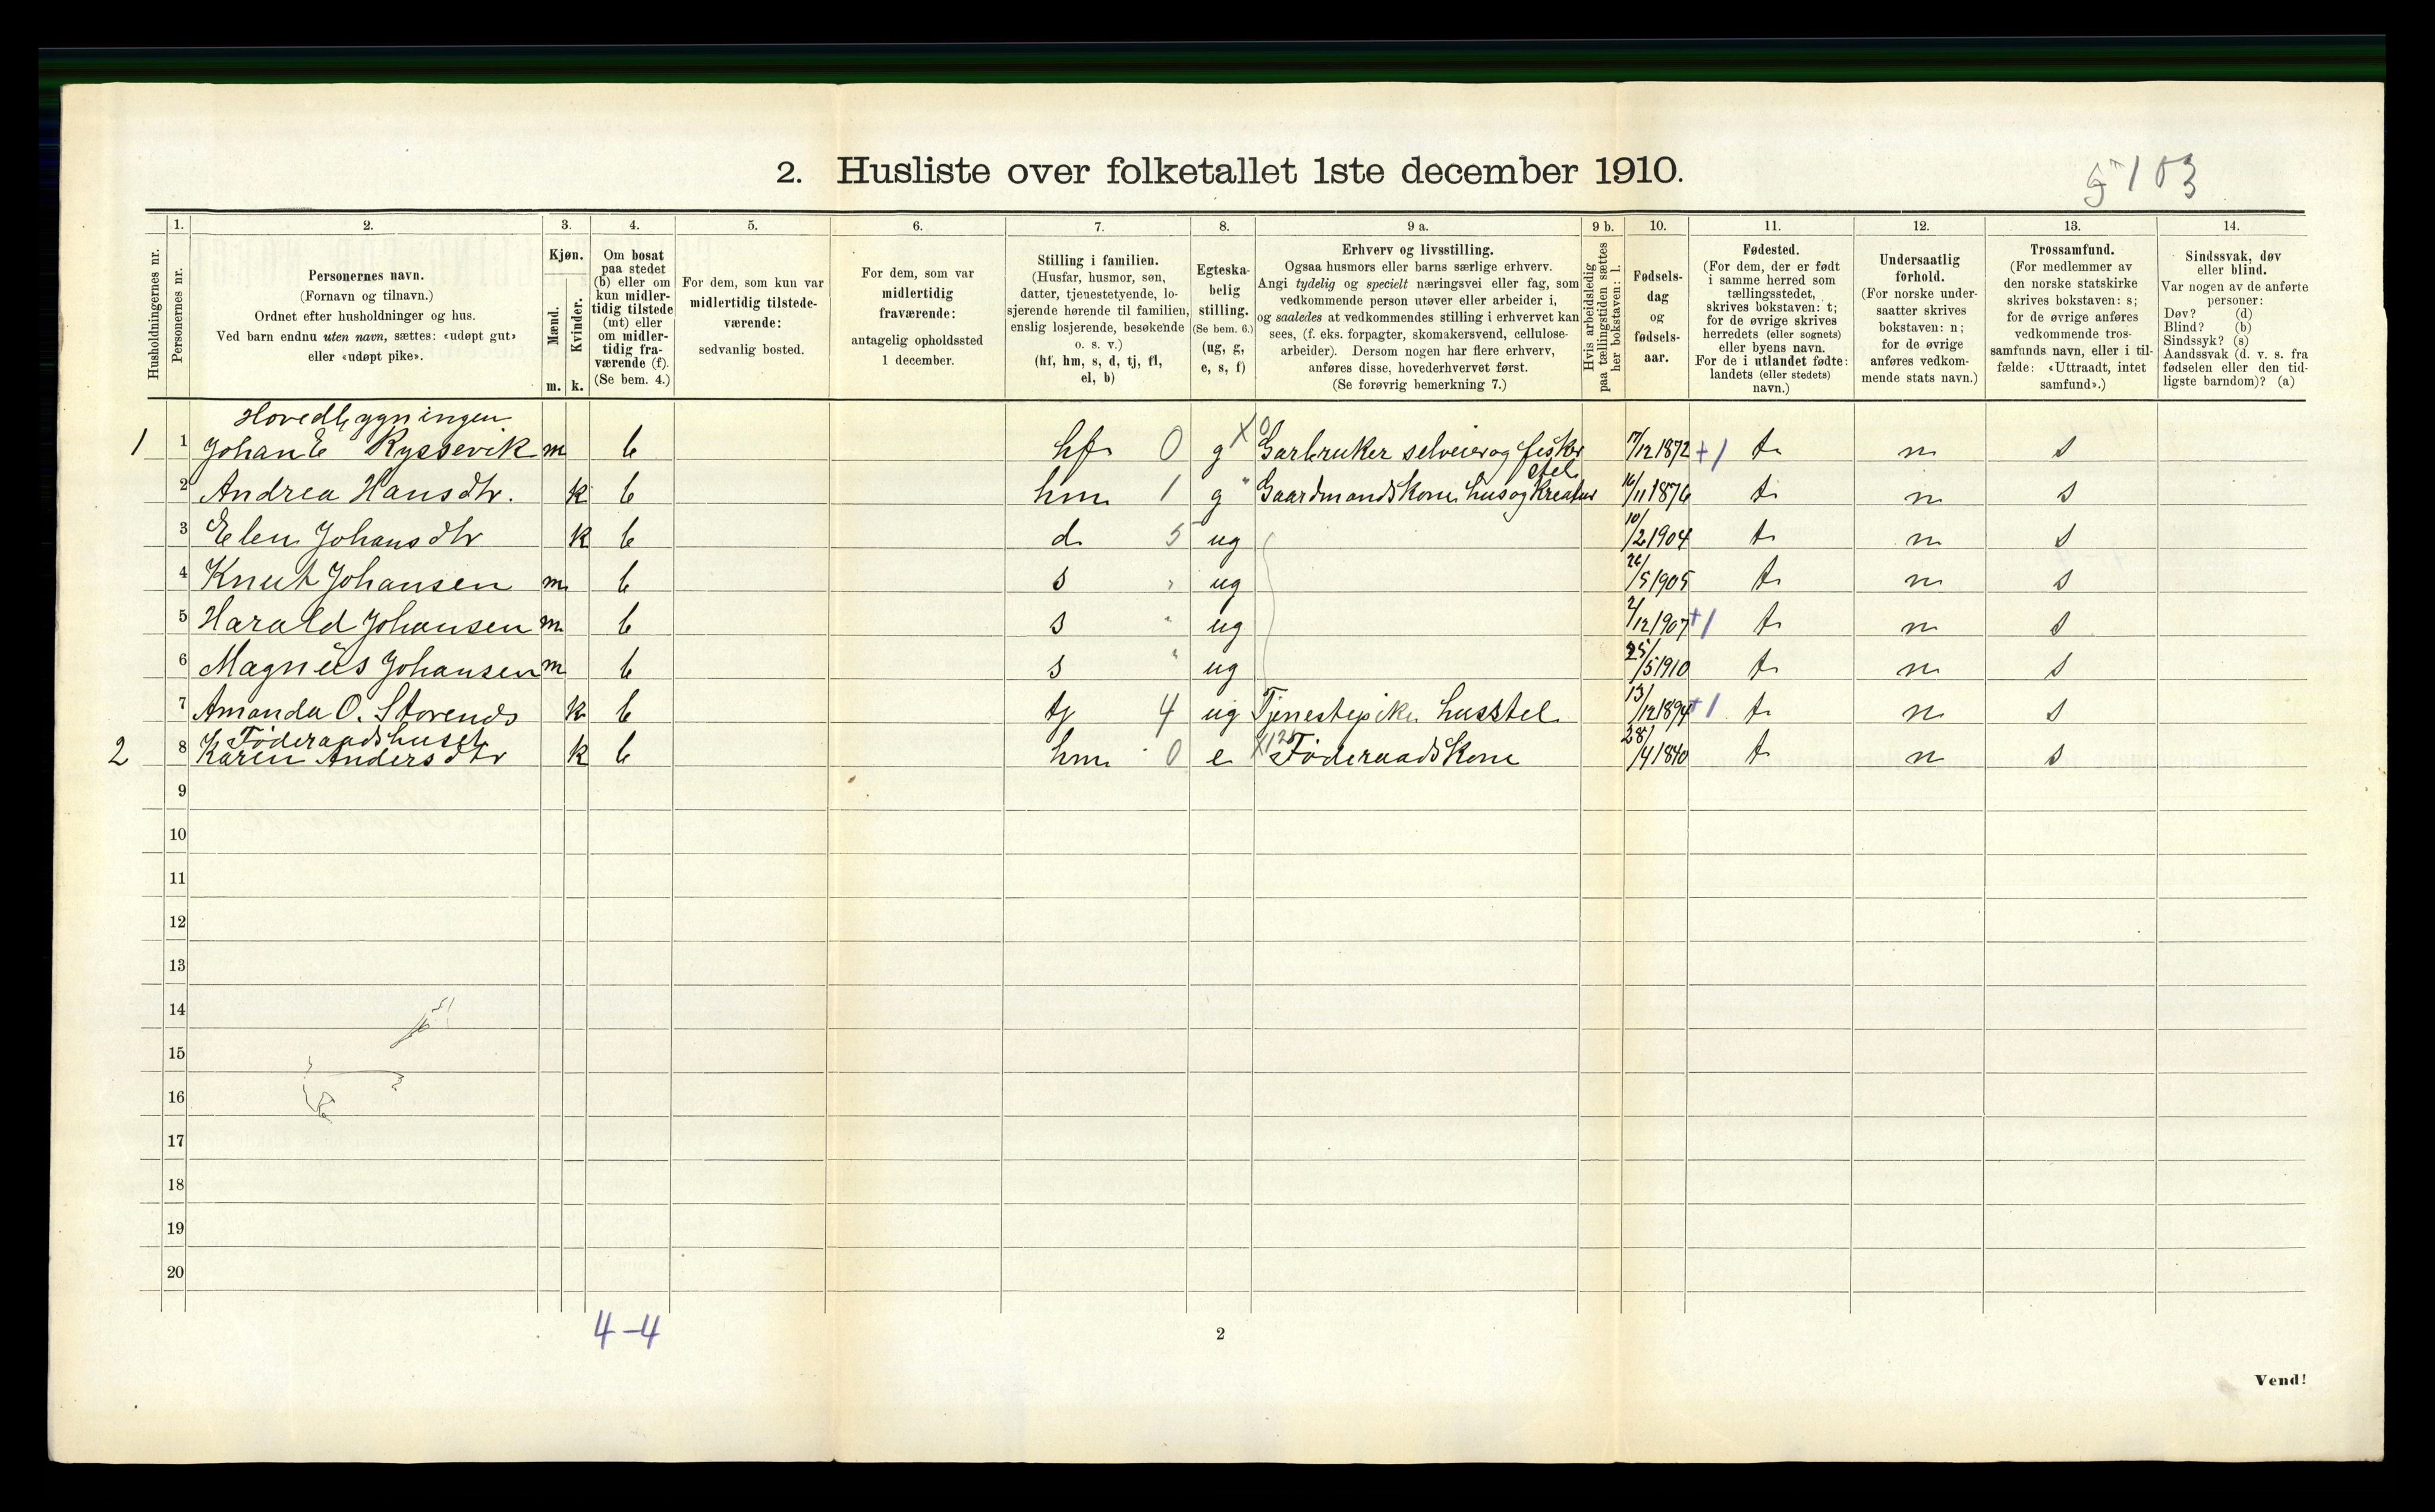 2. Husliste over folketallet 1ste december 1910.
103
1. 2. 3. 4. 5. 6. 7. 8. 9 a. 9 b. 10. 11. 12. 13. 14.
Husholdningernes nr.
Personernes nr.
Personernes navn.
(Fornavn og tilnavn.)
Ordnet efter husholdninger og hus.
Ved barn endnu uten navn, sættes: «udøpt gut»
eller «udøpt pike».
Kjøn.
Mænd.
Kvinder.
m. k.
Om bosat
paa stedet
(b) eller om
kun midler-
tidig tilstede
(mt) eller
om midler-
tidig fra-
værende (f).
(Se bem. 4.)
For dem, som kun var
midlertidig tilstede-
værende:
sedvanlig bosted.
For dem, som var
midlertidig
fraværende:
antagelig opholdssted
1 december.
Stilling i familien.
(Husfar, husmor, søn,
datter, tjenestetyende, lo-
sjerende hørende til familien,
enslig losjerende, besøkende
o. s. v.)
(hf, hm, s, d, tj, fl,
el, b)
Egteska-
belig
stilling.
(Se bem. 6.)
(ug, g,
e, s, f)
Erhverv og livsstilling.
Ogsaa husmors eller barns særlige erhverv.
Angi tydelig og specielt næringsvei eller fag, som
vedkommende person utøver eller arbeider i,
og saaledes at vedkommendes stilling i erhvervet kan
sees, (f. eks. forpagter, skomakersvend, cellulose-
arbeider). Dersom nogen har flere erhverv,
anføres disse, hovederhvervet først.
(Se forøvrig bemerkning 7.)
Hvis arbeidsledig
paa tællingstiden sættes
her bokstaven: l.
Fødsels-
dag
og
fødsels-
aar.
Fødested.
(For dem, der er født
i samme herred som
tællingsstedet,
skrives bokstaven: t;
for de øvrige skrives
herredets (eller sognets)
eller byens navn.
For de i utlandet fødte:
landets (eller stedets)
navn.)
Undersaatlig
forhold.
(For norske under-
saatter skrives
bokstaven: n;
for de øvrige
anføres vedkom-
mende stats navn.)
Trossamfund.
(For medlemmer av
den norske statskirke
skrives bokstaven: s;
for de øvrige anføres
vedkommende tros-
samfunds navn, eller i til-
fælde: «Uttraadt, intet
samfund».)
Sindssvak, døv
eller blind.
Var nogen av de anførte
personer:
Døv? (d)
Blind? (b)
Sindssyk? (s)
Aandssvak (d. v. s. fra
fødselen eller den tid-
ligste barndom)? (a)
Hovedbygningen
1 1 Johan E Ryssevik m b hf 0 g X 0 Garbruker selveier og fisker 17/12 1872 +1 t n s
stel
2 Andrea Hansdtr. k b hm 1 g " Gaardmandskone hus og kreatur 16/11 1876 t n s
3 Elen Johansdtr k b d 5 ug 10/2 1904 t n s
4 Knut Johansen m b s " ug 26/5 1905 t n s
5 Harald Johansen m b s " ug 2/12 1907 +1 t n s
6 Magnus Johansen m b s " ug 25/5 1910 t n s
7 Amanda O. Storends k b tj 4 ug Tjenestepike husstel 13/12 1894 +1 t n s
Föderaadshuset
2 8 Karen Andersdtr k b hm 0 e Föderaadskone 28/4 1840 t n s
9
10
11
12
13
14
15
16
17
18
19
20
4-4
2
Vend!